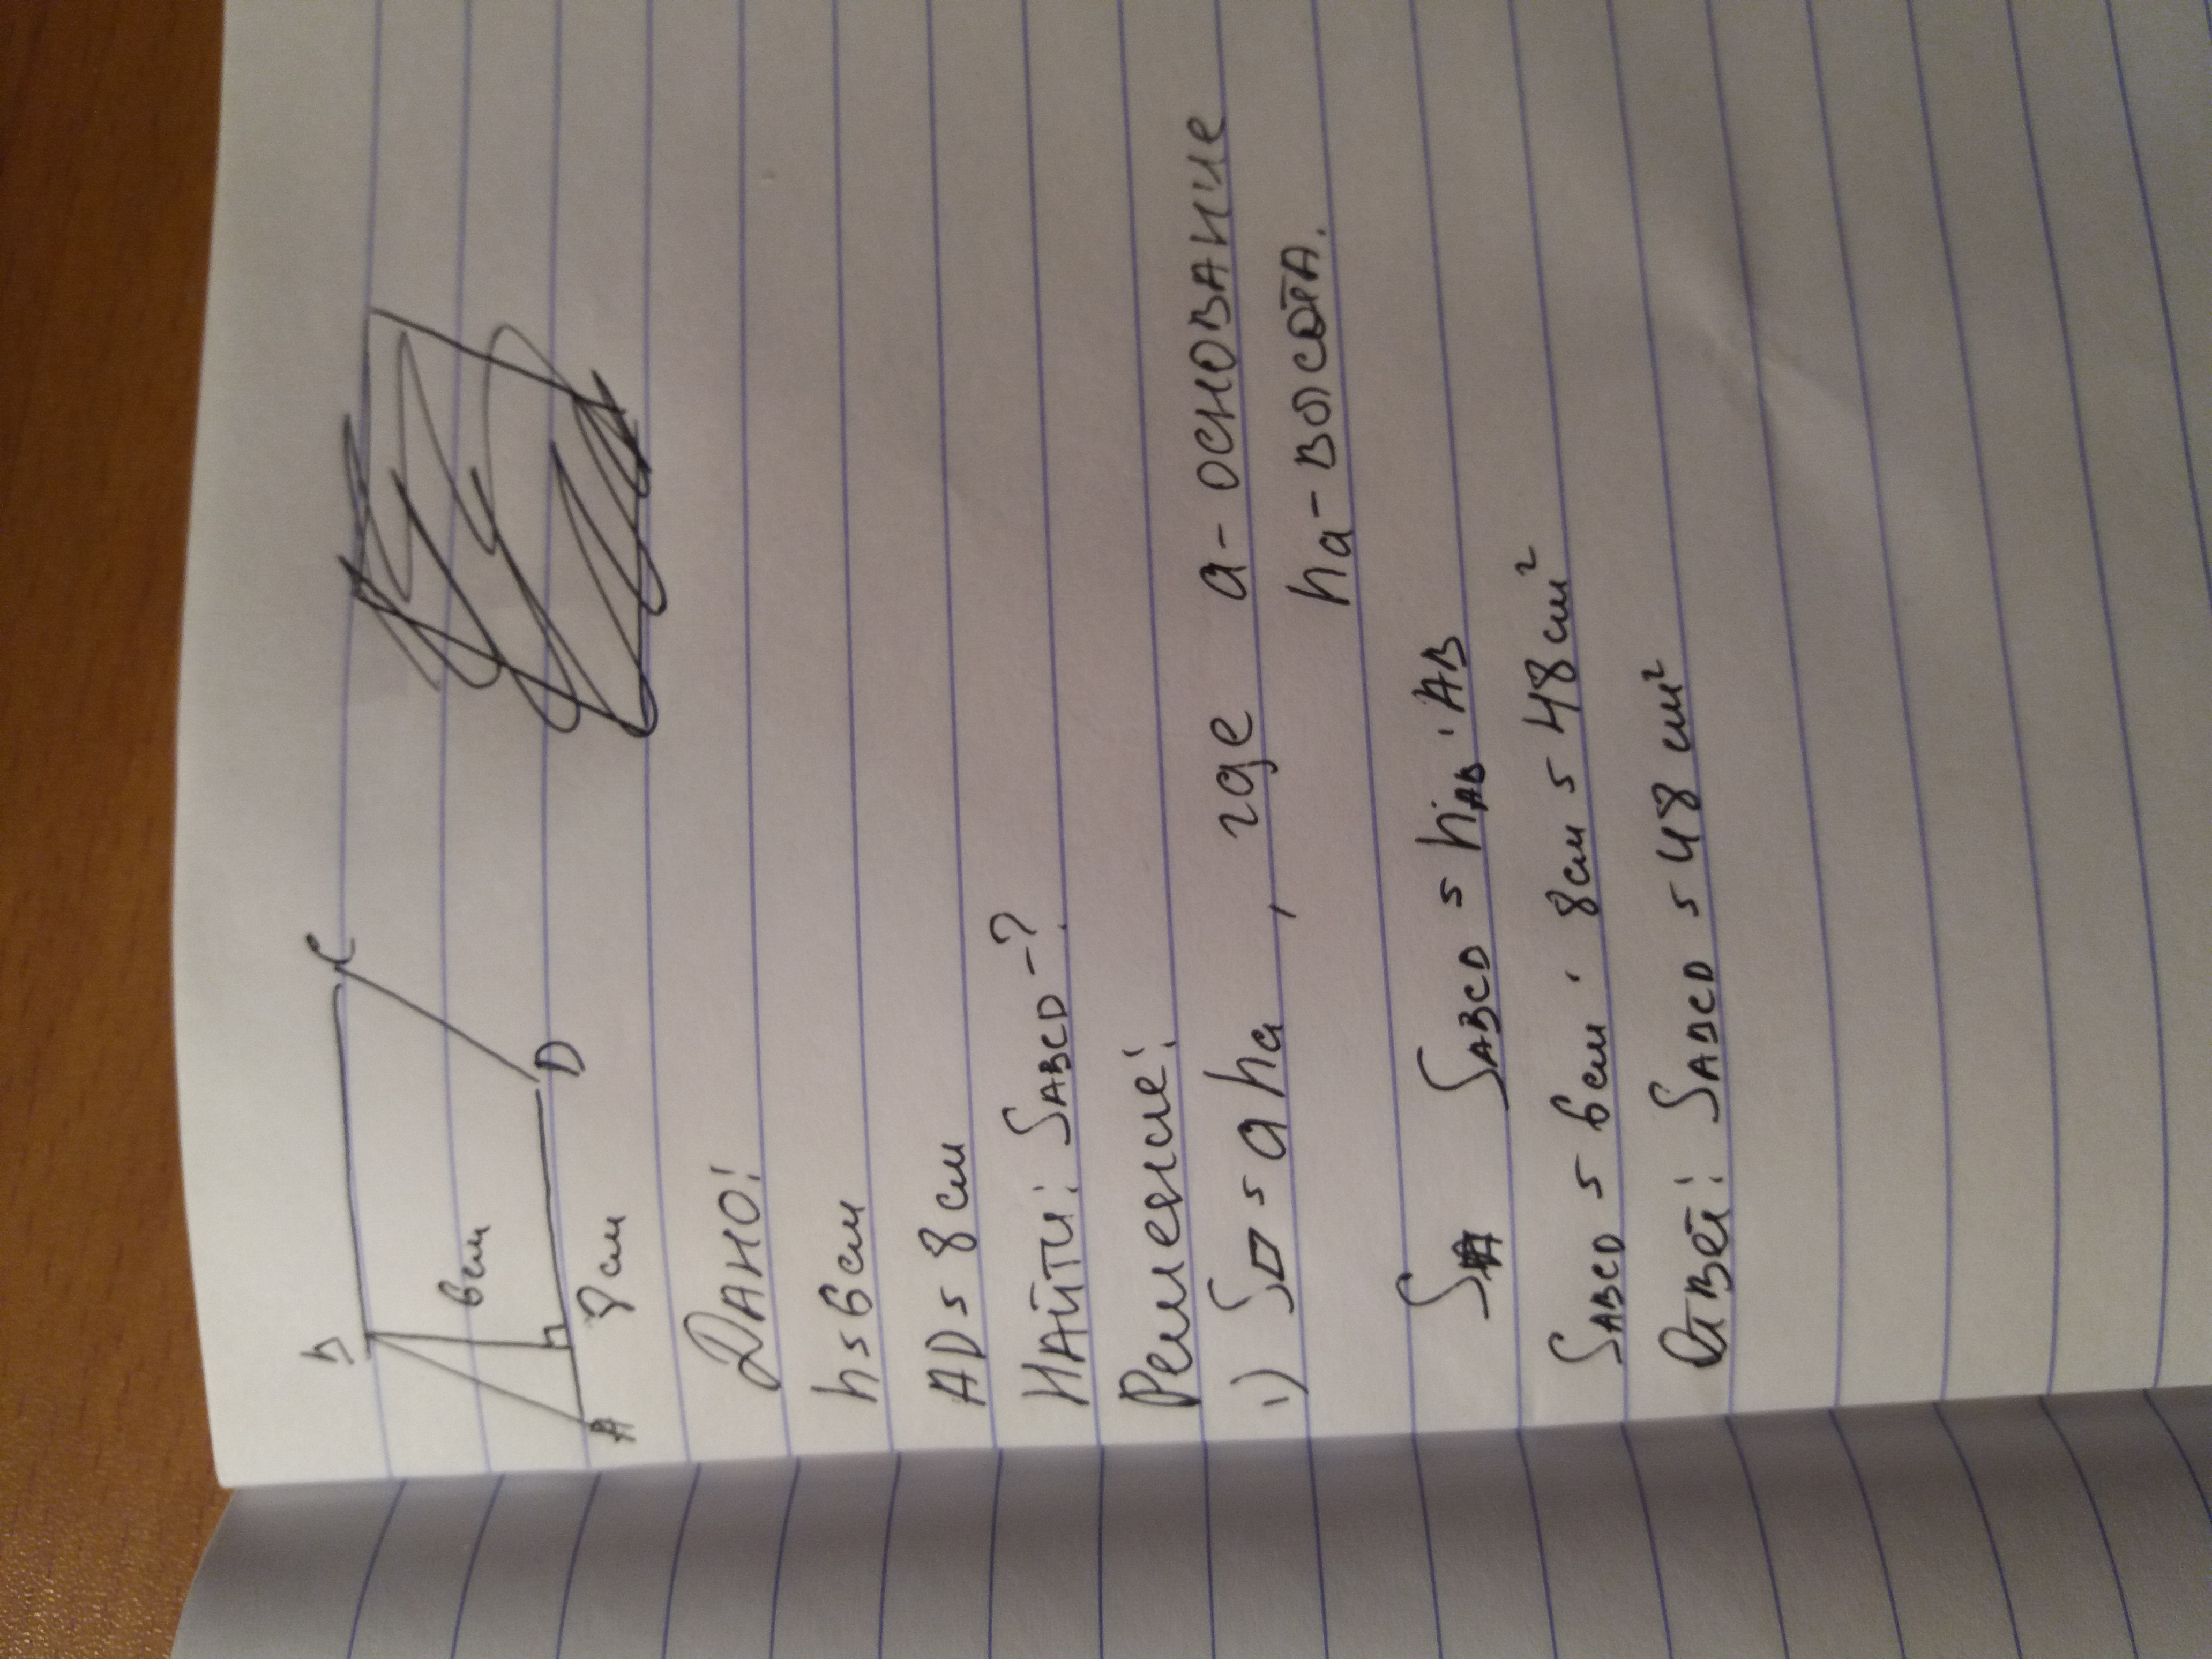 B C
6 см
A D
8 см
Дано:
h = 6 см
AD = 8 см
Найти: SABCD - ?
Решение:
1) S▱ = a ha , где a - основание
ha - высота.
SABCD = hAB · AB
SABCD = 6 см · 8 см = 48 см²
Ответ: SABCD = 48 см²